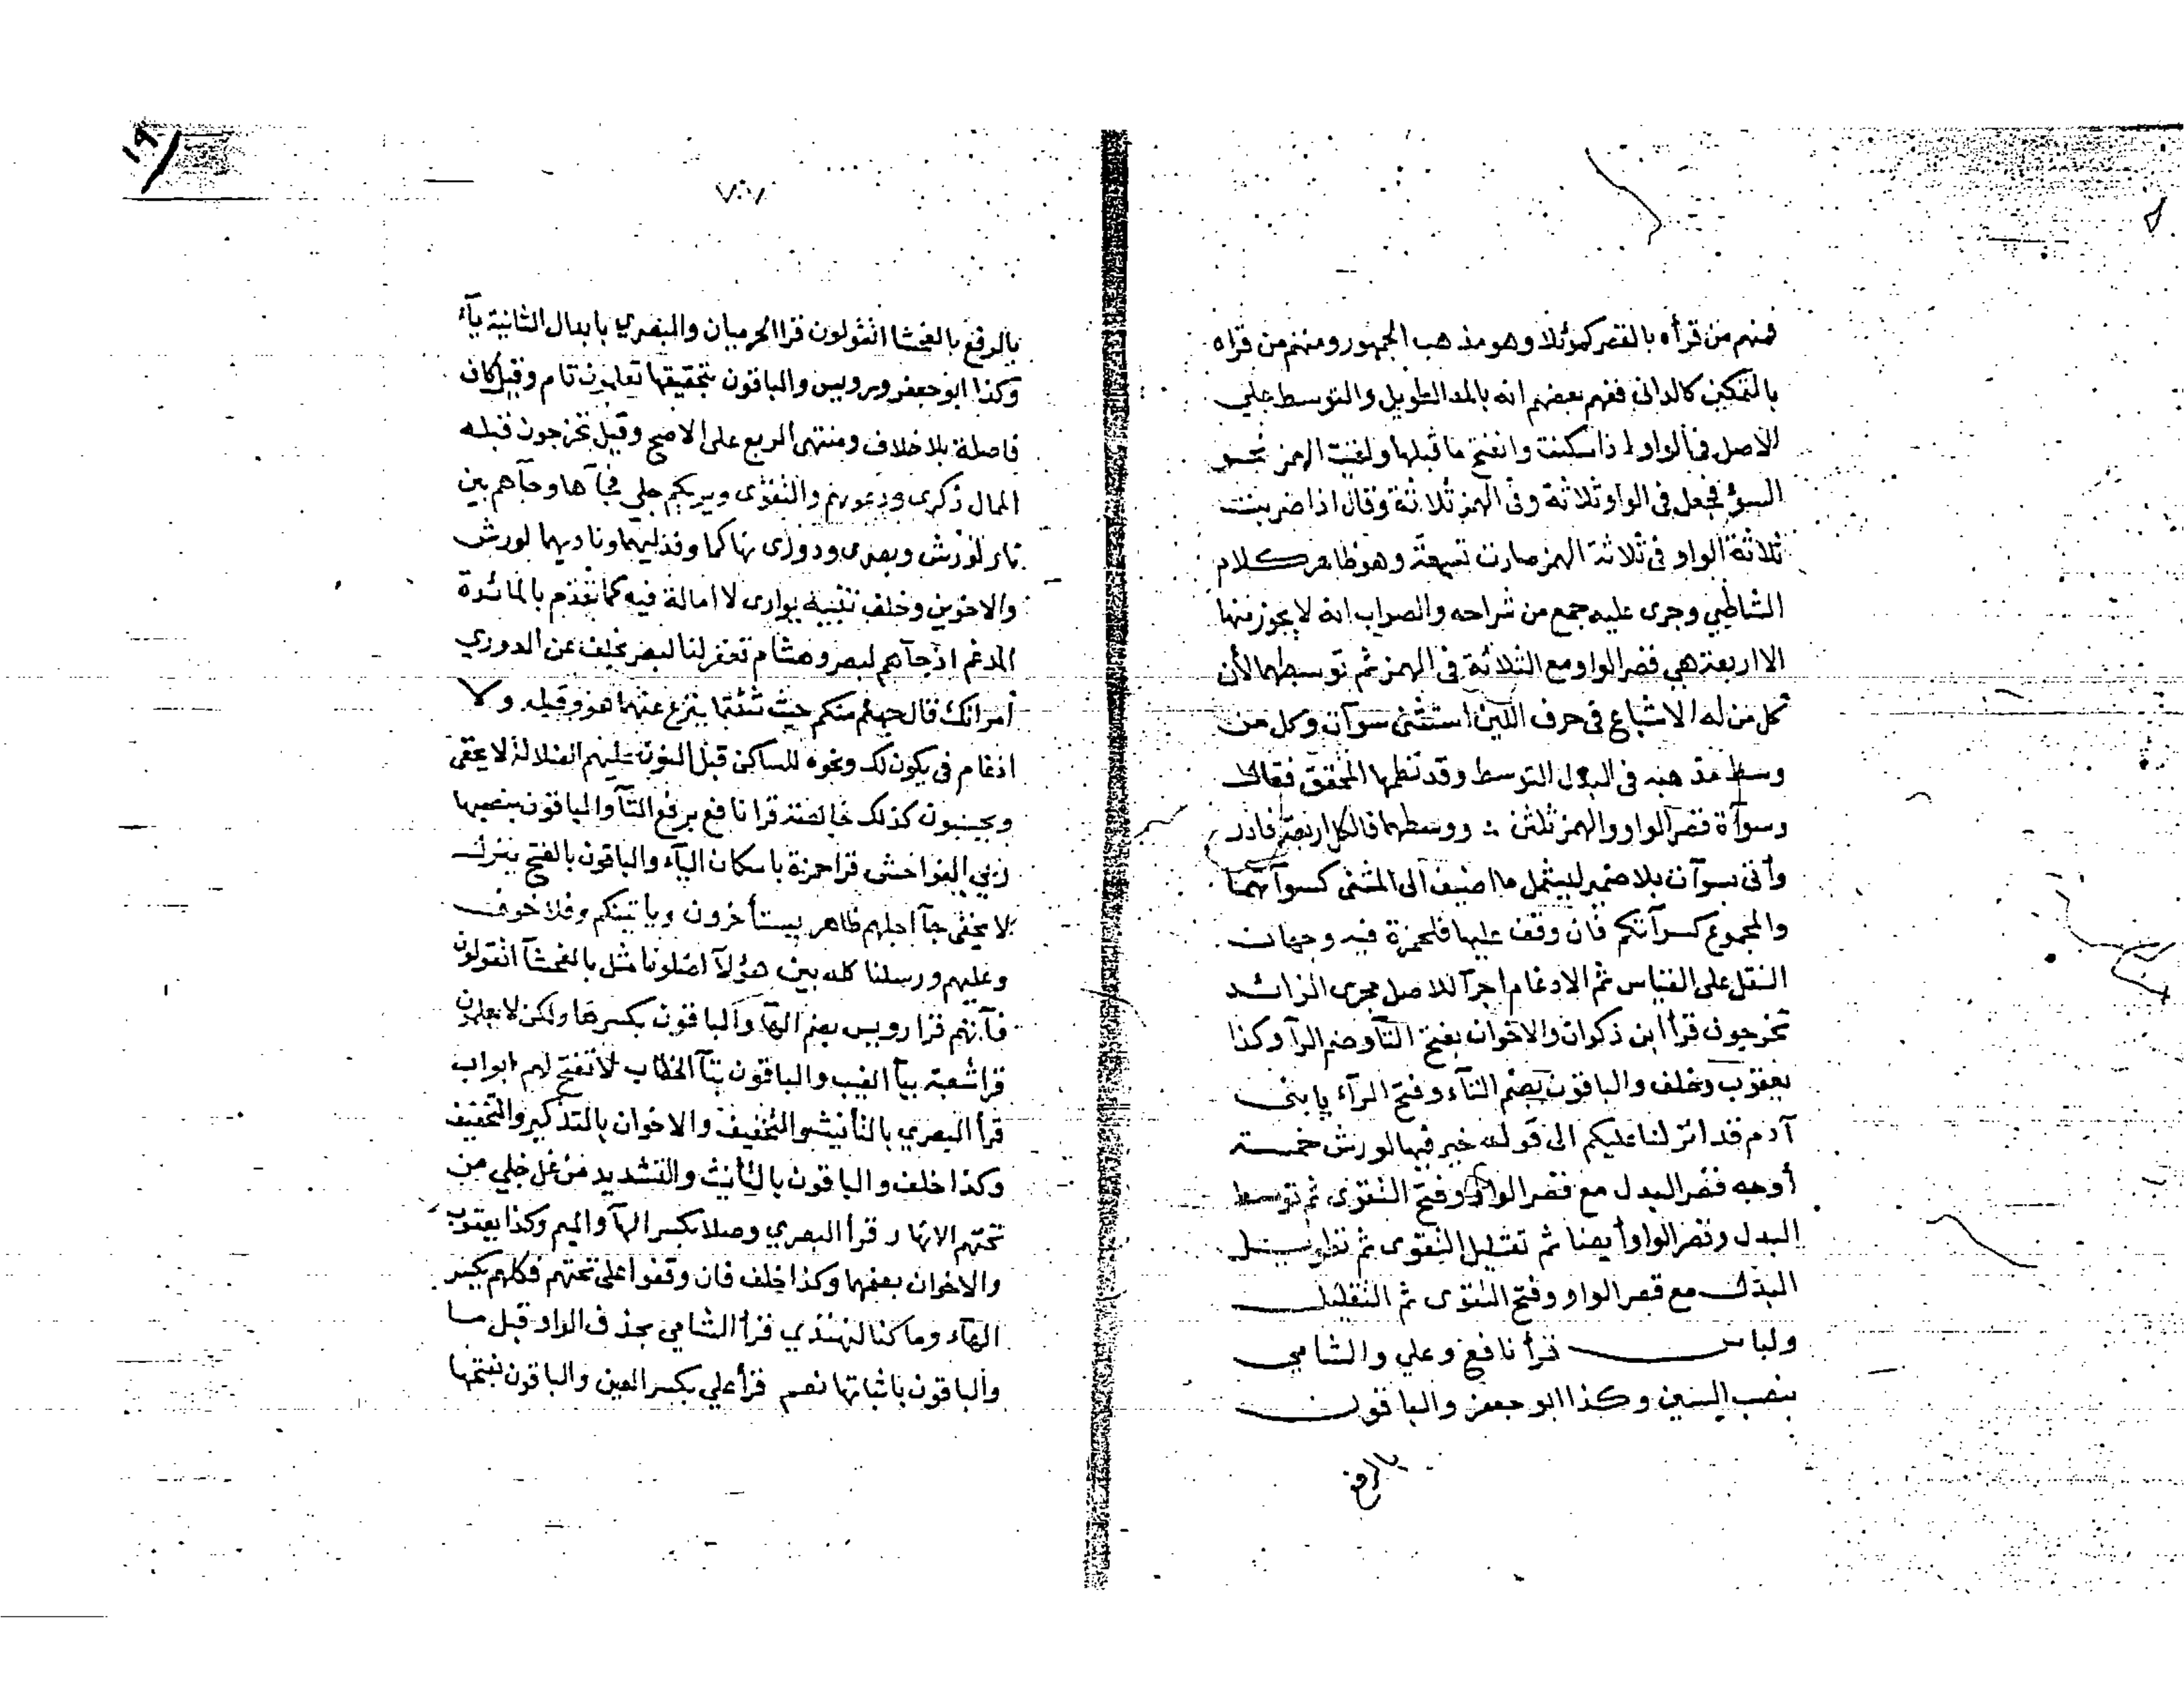 فمنهم من قرأه بالقصر كموئلا وهو مذهب الجمهور ومنهم من قراه
بالتمكين كالداني ففهم بعضهم انه بالمد الطويل والتوسط على
الاصل في الواو اذا سكنت وانفتح ما قبلها ولقيت الهمز نحو
السوء فجعل في الواو ثلاثة وفي الهمز ثلاثة وقال اذا ضربت
ثلاثة الواو في ثلاثة الهمز صارت تسعة وهو ظاهر كلام
الشاطبي وجرى عليه جمع من شراحه والصواب انه لا يجوز منها
الا اربعة هي قصر الواو مع الثلاثة في الهمز ثم توسطهما لأن
كل من له الاشباع في حرف اللين استثنى سوآت وكل من
وسط مذهبه في البدل التوسط وقد نظمها المحقق فقال
وسوآة قصر الواو والهمز ثلثن ؞ ووسطهما فالكل اربعة فادر
وأتى بسوآت بلا ضمير ليشمل ما اضيف الى المثنى كسوآتهما
والمجموع كسوآتكم فان وقف عليها فلحمزة فيه وجهان
النقل على القياس ثم الادغام اجرآ للاصل مجرى الزائد
تخرجون قرأ ابن ذكوان والاخوان بفتح التآ وضم الرآ وكذا
يعقوب وخلف والباقون بضم التاء وفتح الرآء يا بنى
آدم قد انزلنا عليكم الى قوله خير فيها لورش خمسة
أوجه قصر البدل مع قصر الواو وفتح التقوى ثم توسط
البدل وقصر الواو أيضا ثم تقليل التقوى ثم تطويل
البدل مع قصر الواو وفتح التقوى ثم التقليل
ولباس قرأ نافع وعلي والشامي
بنصب السين وكذا ابو جعفر والباقون
بالرفع
١٩
٧٠٧
بالرفع بالفحشا اتقولون قرا الحرميان والبصري بابدال الثانية يآء
وكذا ابو جعفر ورويس والباقون بتحقيقها تعلمون تام وقيل كاف
فاصلة بلا خلاف ومنتهى الربع على الاصح وقيل تخرجون قبله
الممال ذكرى ودعوىهم والتقوى ويريكم جلي فجآها وجآهم بين
نار لورش وبصرى ودورى نهاكما وفدليهما وناديهما لورش
والاخوين وخلف تنبيه يوارى لا امالة فيه كما تقدم بالمائدة
المدغم اذ جآهم لبصر وهشام تغفر لنا لبصر بخلف عن الدوري
أمرتك قال جهنم منكم حيث شئتما ينزع عنهما هو وقيله ولا
ادغام في يكون لك ونحوه للساكن قبل النون عليهم الضلالة لا يخفى
ويحسبون كذلك خالصة قرا نافع برفع التآ والباقون بنصبها
ربي الفواحش قرا حمزة باسكان اليآء والباقون بالفتح ينزل
لا يخفى جآ اجلهم ظاهر يستأخرون ويأتينكم وفلا خوف
وعليهم ورسلنا كله بين هؤلآ اضلونا مثل بالفحشآ اتقولون
فآتهم قرا رويس بضم الهآ والباقون بكسرها ولكن لا يعلمون
قرا شعبة بيآ الغيب والباقون بتآ الخطاب لا تفتح لهم ابواب
قرأ البصري بالتأنيث والتخفيف والاخوان بالتذكير والتخفيف
وكذا خلف والباقون بالتأنيث والتشديد من غل جلي من
تحتهم الانهار قرأ البصري وصلا بكسر الهآ والميم وكذا يعقوب
والاخوان بضمهما وكذا خلف فان وقفوا على تحتهم فكلهم بكسر
الهآء وما كنا لنهتدي قرأ الشامي بحذف الواو قبل ما
والباقون باثباتها نعم قرأ علي بكسر العين والباقون بفتحها